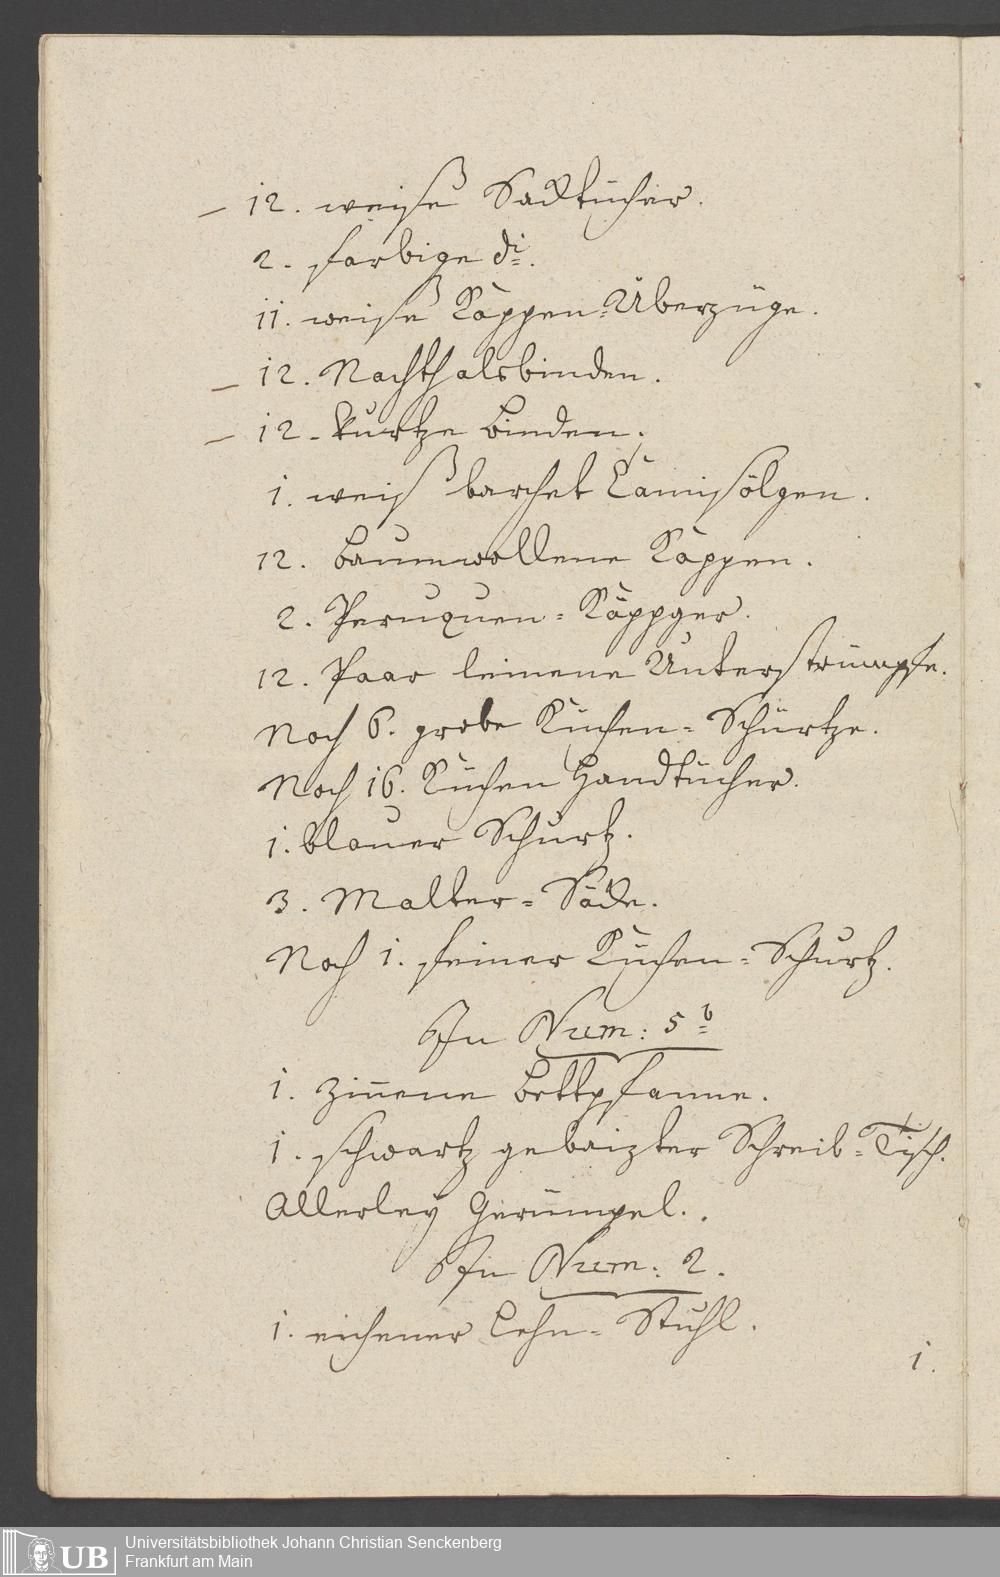 – 12. weiße Sacktücher.
2. farbige di.
11. weiße Kappen-Überzüge.
– 12. Nachthalsbinden.
– 12. kurtze Binden.
1. weiß barchet Camisölgen.
12. Baumwollene Kappen.
2. Peruquen-Käppger.
12. Paar leinene Unterstrümpfe.
Noch 6. grobe Küchen-Schürtze.
Noch 16. Küchen Handtücher.
1. blauer Schurtz.
3. Malter-Säcke.
Noch 1. feiner Küchen-Schurtz.
In Num: 5b
1. zinnene Bettpfanne.
1. schwartz gebaizter Schreib-Tisch.
Allerley Gerümpel.
In Num: 2.
1. eichener Lehn-Stuhl.
1.
UB
Universitätsbibliothek Johann Christian Senckenberg
Frankfurt am Main